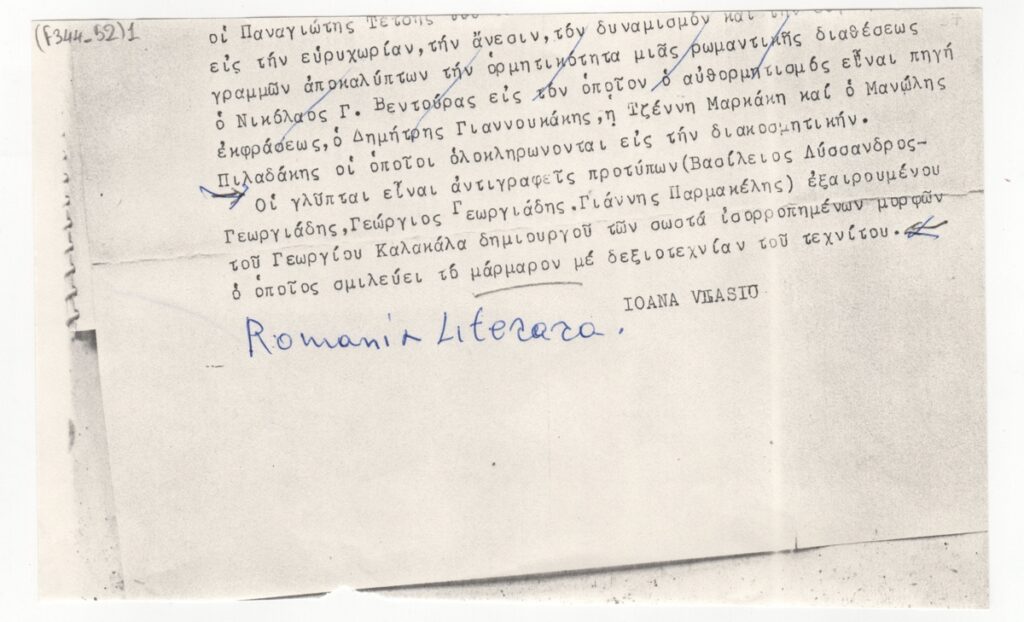 (F344-52)1
οἱ Παναγιώτης Τέτσης
εἰς τήν εὐρυχωρίαν,τήν ἄνεσιν,τόν δυναμισμόν καί τήν
γραμμῶν ἀποκαλύπτων τήν ὁρμητικότητα μιᾶς ρωμαντικῆς διαθέσεως
ὁ Νικόλαος Γ. Βεντούρας εἰς τόν ὁποῖον ὁ αὐθορμητισμός εἶναι πηγή
ἐκφράσεως,ὁ Δημήτρης Γιαννουκάκης,ἡ Τζέννη Μαρκάκη καί ὁ Μανώλης
Πιλαδάκης οἱ ὁποῖοι ὁλοκληρωνονται εἰς τήν διακοσμητικήν.
Οἱ γλῦπται εἶναι ἀντιγραφεῖς προτύπων(Βασίλειος Δύσσανδρος-
Γεωργιάδης,Γεώργιος Γεωργιάδης.Γιάννης Παρμακέλης) ἐξαιρουμένου
τοῦ Γεωργίου Καλακάλα δημιουργοῦ τῶν σωστά ἰσορροπημένων μορφῶν
ὁ ὁποῖος σμιλεύει τό μάρμαρον μέ δεξιοτεχνίαν τοῦ τεχνίτου.
IOANA VLASIU
Romania Literara.